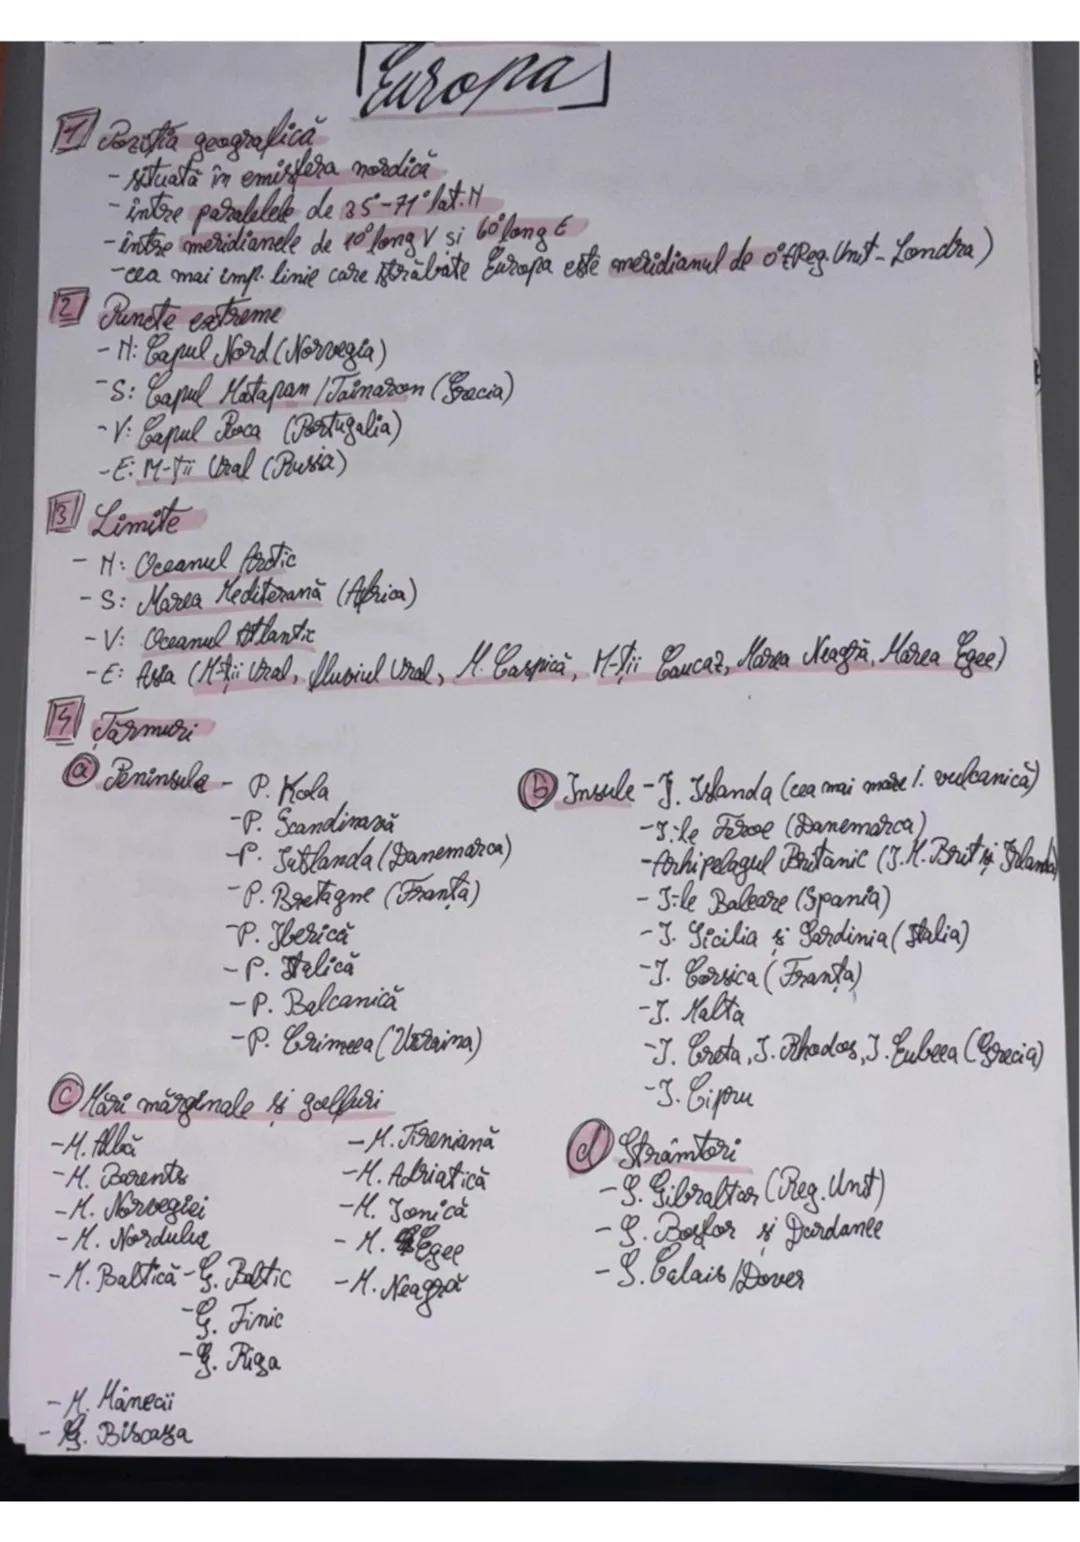 Europa
1 Poziția geografică
- situată în emisfera nordică
- între paralelele de 35°-71° lat. N
- între meridianele de 10° long V si 60° long E
- cea mai imp. linie care străbate Europa este meridianul de 0° (Reg. Unit - Londra)
2 Puncte extreme
- N: Capul Nord (Norvegia)
- S: Capul Matapan / Tainaron (Grecia)
- V: Capul Roca (Portugalia)
- E: M-ții Ural (Rusia)
3 Limite
- N: Oceanul Arctic
- S: Marea Mediterană (Africa)
- V: Oceanul Atlantic
- E: Asia (M-ții Ural, fluviul Ural, M. Caspică, M-ții Caucaz, Marea Neagră, Marea Egee)
4 Țărmuri
a Peninsule - P. Kola
- P. Scandinavă
- P. Iutlanda (Danemarca)
- P. Bretagne (Franța)
- P. Iberică
- P. Italică
- P. Balcanică
- P. Crimeea (Ucraina)
b Insule - I. Islanda (cea mai mare i. vulcanică)
- I-le Feroe (Danemarca)
- Arhipelagul Britanic (I. M. Brit și Irlanda)
- I-le Baleare (Spania)
- I. Sicilia și Sardinia (Italia)
- I. Corsica (Franța)
- I. Malta
- I. Creta, I. Rhodos, I. Eubeea (Grecia)
- I. Cipru
c Mări mărginale și golfuri
- M. Albă
- M. Barents
- M. Norvegiei
- M. Nordului
- M. Baltică - G. Baltic
- G. Finic
- G. Riga
- M. Mânecii
- G. Biscaya
- M. Tireniană
- M. Adriatică
- M. Ionică
- M. Egee
- M. Neagră
d Strâmtori
- S. Gibraltar (Reg. Unit)
- S. Bosfor și Dardanele
- S. Calais / Dover